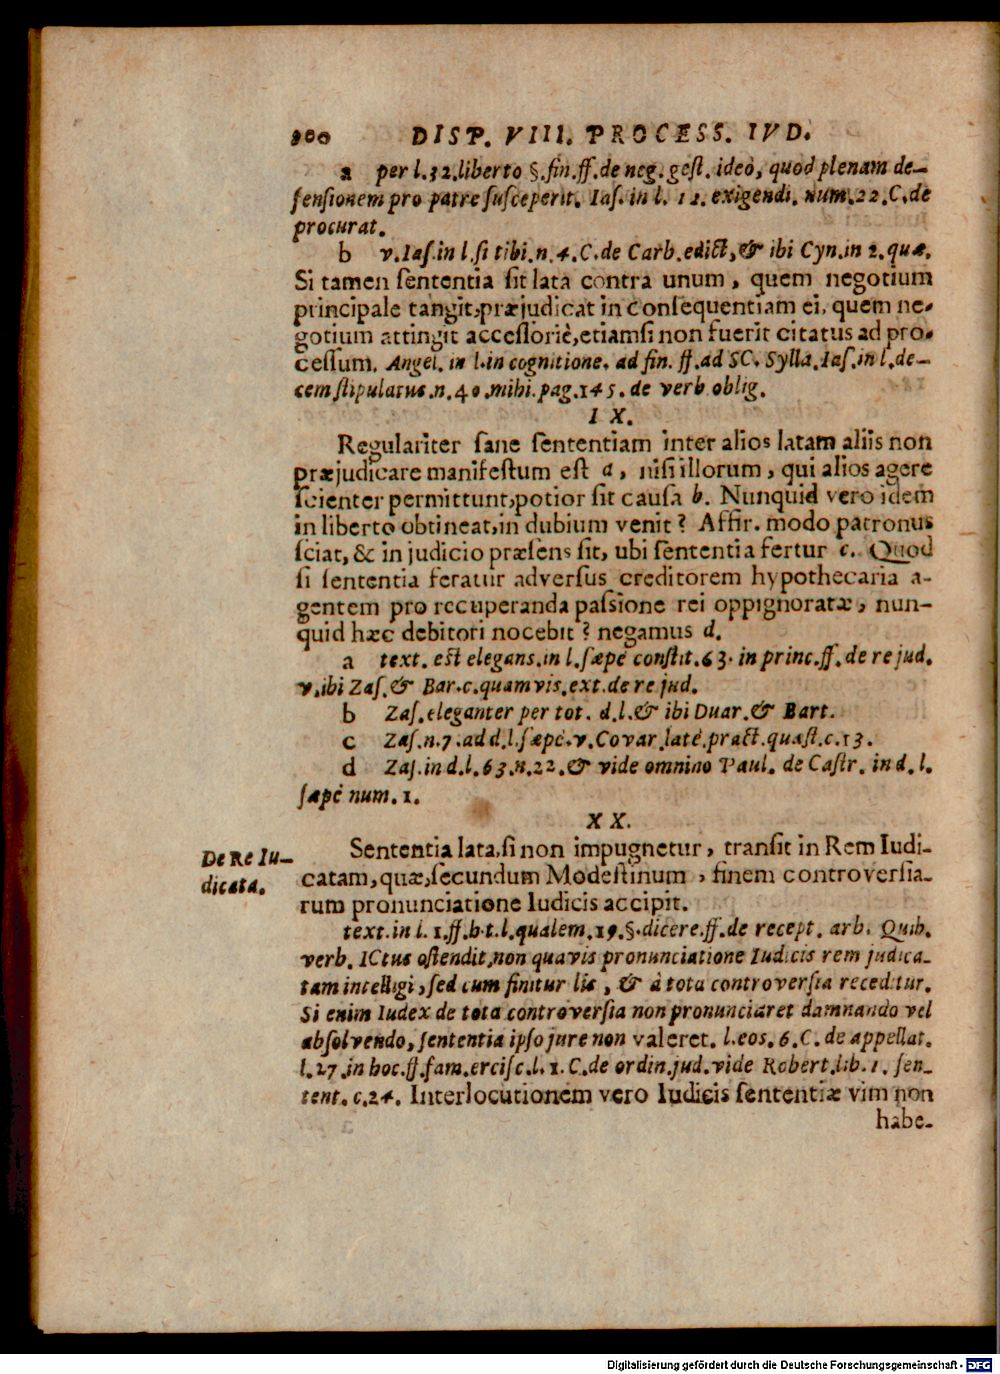 300 DISP. VIII. PROCESS. IVD.
a per l.32.liberto §.fin.ff.de neg.gest. ideò, quod plenam de-
fensionem pro patre susceperit. Ias. in l. 12. exigendi. num.22.C.de
procurat.
b v.Ias.in l.si tibi.n.4.C.de Carb.edict,& ibi Cyn.in 2.quæ.
Si tamen sententia sit lata contra unum, quem negotium
principale tangit,præjudicat in consequentiam ei, quem ne-
gotium attingit accessoriè,etiamsi non fuerit citatus ad pro-
cessum. Angel. in l.in cognitione. ad fin. ff.ad SC. Sylla.Ias.in l.de-
cem stipulatus.n.40.mihi.pag.145. de verb oblig.
IX.
Regulariter sane sententiam inter alios latam aliis non
præjudicare manifestum est a, nisi illorum, qui alios agere
scienter permittunt,potior sit causa b. Nunquid vero idem
in liberto obtineat,in dubium venit? Affir. modo patronus
sciat, & in judicio præsens sit, ubi sententia fertur c. Quod
si sententia feratur adversus creditorem hypothecaria a-
gentem pro recuperanda passione rei oppignoratæ, nun-
quid hæc debitori nocebit? negamus d.
a text. est elegans.in l.sæpè constit.63. in princ.ff.de re jud.
v.ibi Zas.& Bar.c.quamvis.ext.de re jud.
b Zas.eleganter per tot. d.l.& ibi Duar.& Bart.
c Zas.n.7.ad d.l.sæpè.v.Covar.latè.pract.quæst.c.13.
d Zas.in d.l.63.n.22.& vide omnino Paul. de Castr. in d. l.
sæpè num. 1.
XX.
De Re Iu-
dicata.
Sententia lata,si non impugnetur, transit in Rem Iudi-
catam,quæ,secundum Modestinum, finem controversia-
rum pronunciatione Iudicis accipit.
text.in l. 1.ff.h.t.l.qualem.19.§.dicere.ff.de recept. arb. Quib.
verb. ICtus ostendit,non quavis pronunciatione Iudicis rem judica-
tam intelligi,sed cum finitur lis, & à tota controversia receditur.
Si enim Iudex de tota controversia non pronunciaret damnando vel
absolvendo, sententia ipso jure non valeret. l.eos. 6.C. de appellat.
l.27.in hoc.ff.fam.ercisc.l.1.C.de ordin.jud.vide Robert.lib.1. sen-
tent. c.24. Interlocutionem vero Iudicis sententiæ vim non
habe-
Digitalisierung gefördert durch die Deutsche Forschungsgemeinschaft - DFG